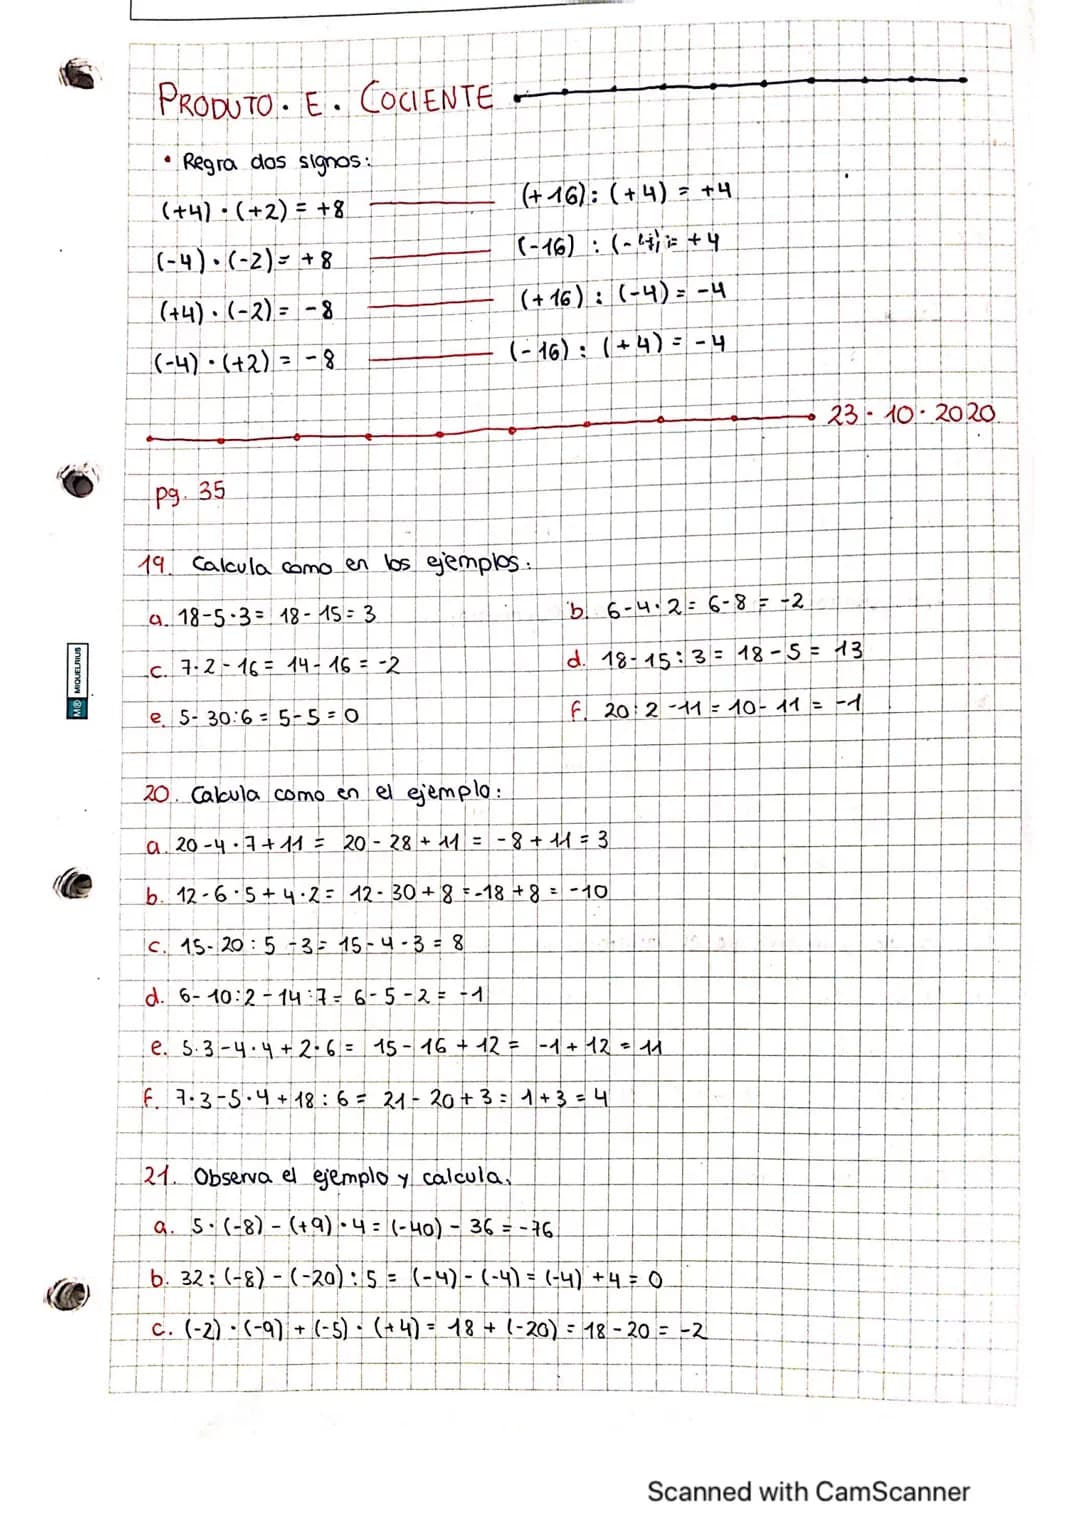 PRODUTO. E. COCIENTE
• Regra dos signos:
(+4)·(+2) = +8 (+16):(+4) = +4
(-4)·(-2) = +8 (-16) : (-4) = +4
(+4)·(-2) = -8 (+16) : (-4) = -4
(-4)·(+2) = -8 (-16) : (+4) = -4
23·10·2020
pg. 35
19. Calcula como en los ejemplos:
a. 18-5·3 = 18-15 = 3 b. 6-4·2 = 6-8 = -2
c. 7·2-16 = 14-16 = -2 d. 18-15:3 = 18-5 = 13
e. 5-30:6 = 5-5 = 0 f. 20:2-11 = 10-11 = -1
20. Calcula como en el ejemplo:
a. 20-4·7+11 = 20-28+11 = -8+11 = 3
b. 12-6·5+4·2 = 12-30+8 = -18+8 = -10
c. 15-20:5-3 = 15-4-3 = 8
d. 6-10:2-14:7 = 6-5-2 = -1
e. 5·3-4·4+2·6 = 15-16+12 = -1+12 = 11
f. 7·3-5·4+18:6 = 21-20+3 = 1+3 = 4
21. Observa el ejemplo y calcula.
a. 5·(-8)-(+9)·4 = (-40)-36 = -76
b. 32:(-8)-(-20):5 = (-4)-(-4) = (-4)+4 = 0
c. (-2)·(-9)+(-5)·(+4) = 18+(-20) = 18-20 = -2
M® MIQUELRIUS
Scanned with CamScanner